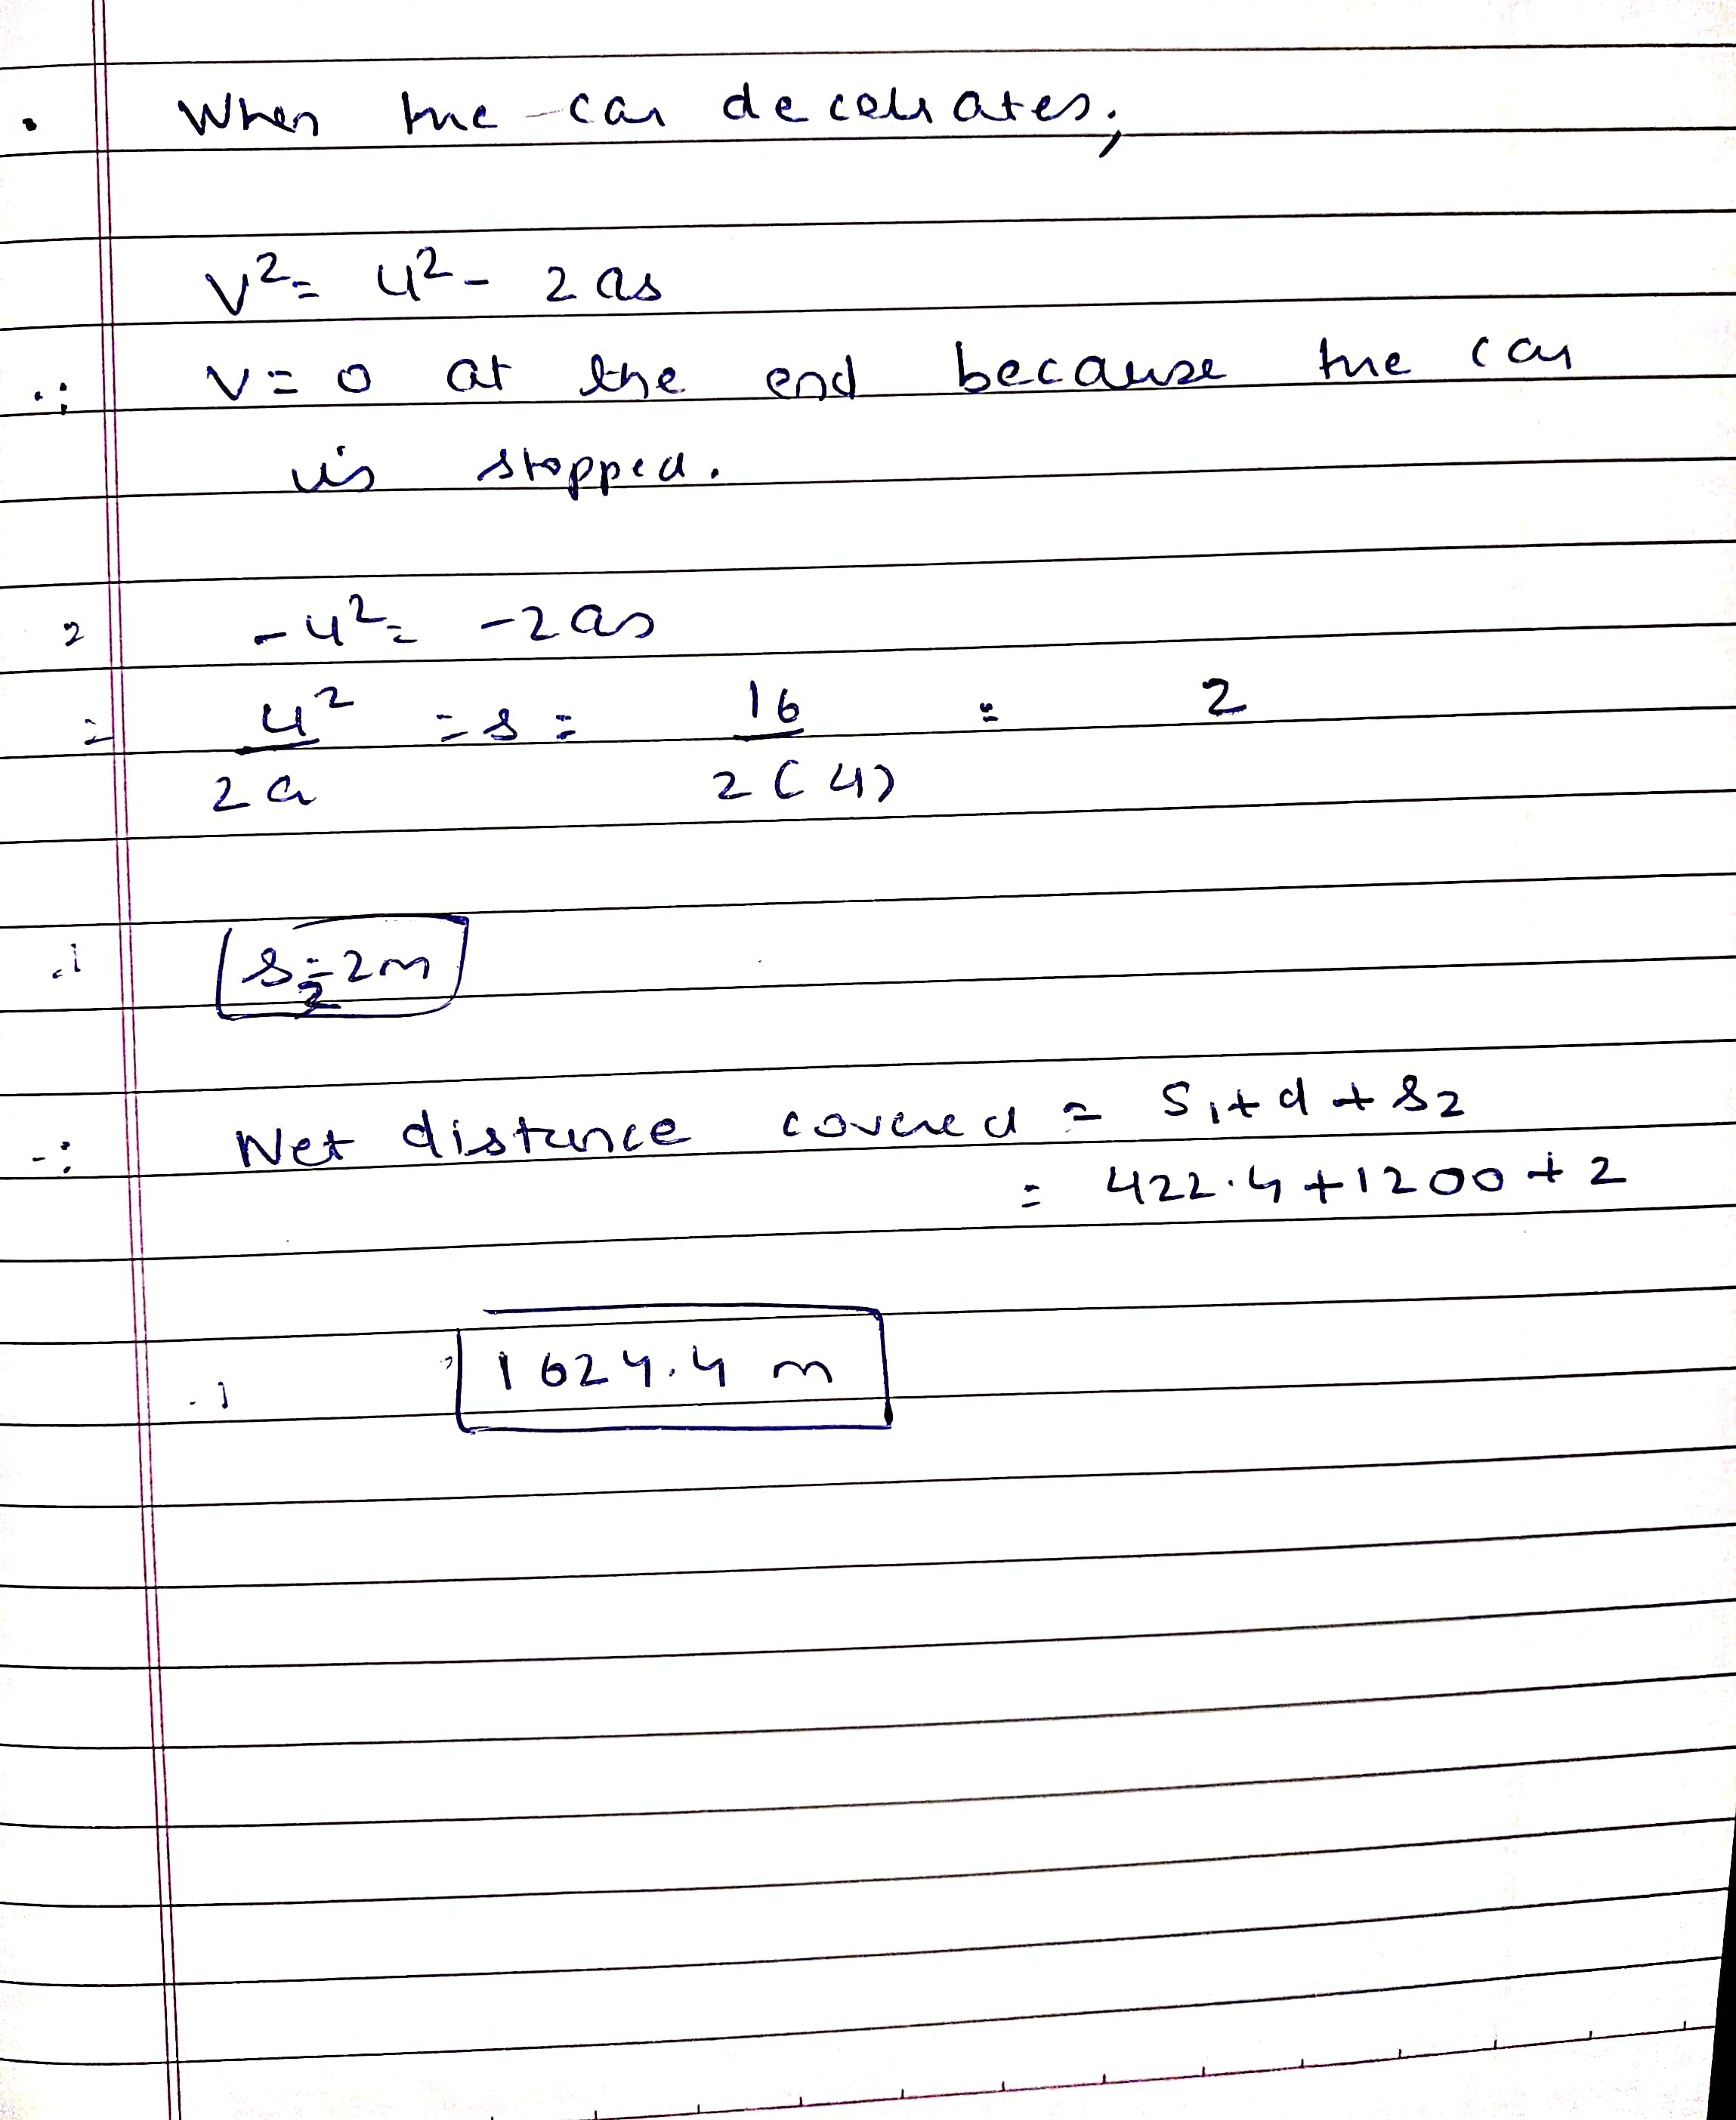 • When the car decelerates;
v² = u² - 2 as
∴ v = 0 at the end because the car
is stopped.
= -u² = -2as
= u²/2a = s = 16/2(4) = 2
∴ s₂ = 2m
∴ Net distance covered = S₁ + d + s₂
= 422.4 + 1200 + 2
∴ = 1624.4 m